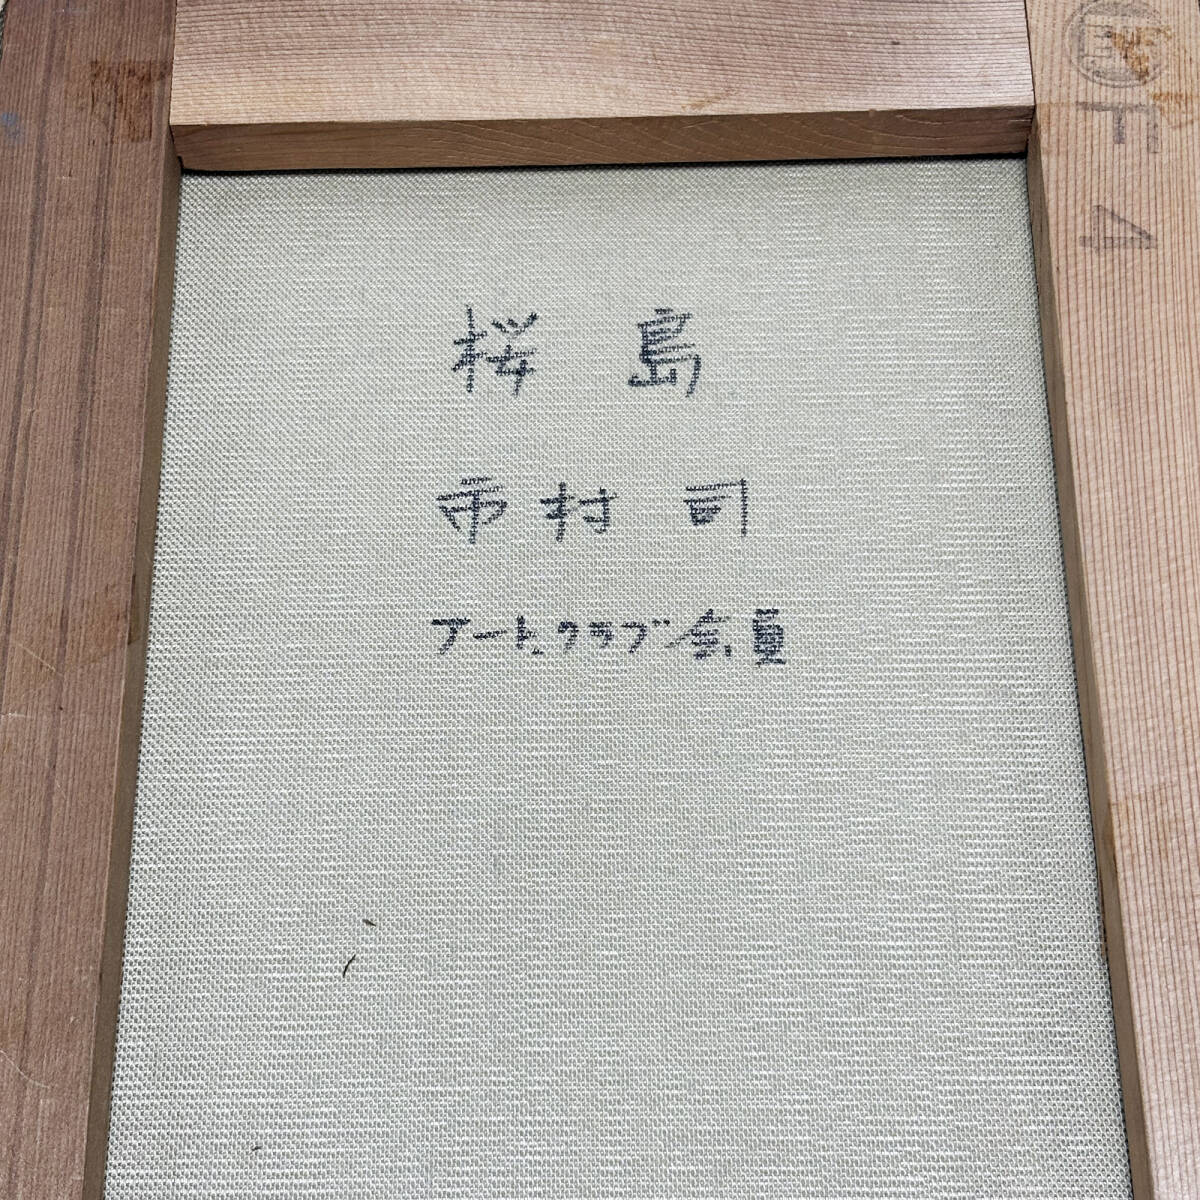 桜島
市村 司
アートクラブ会員
F 4